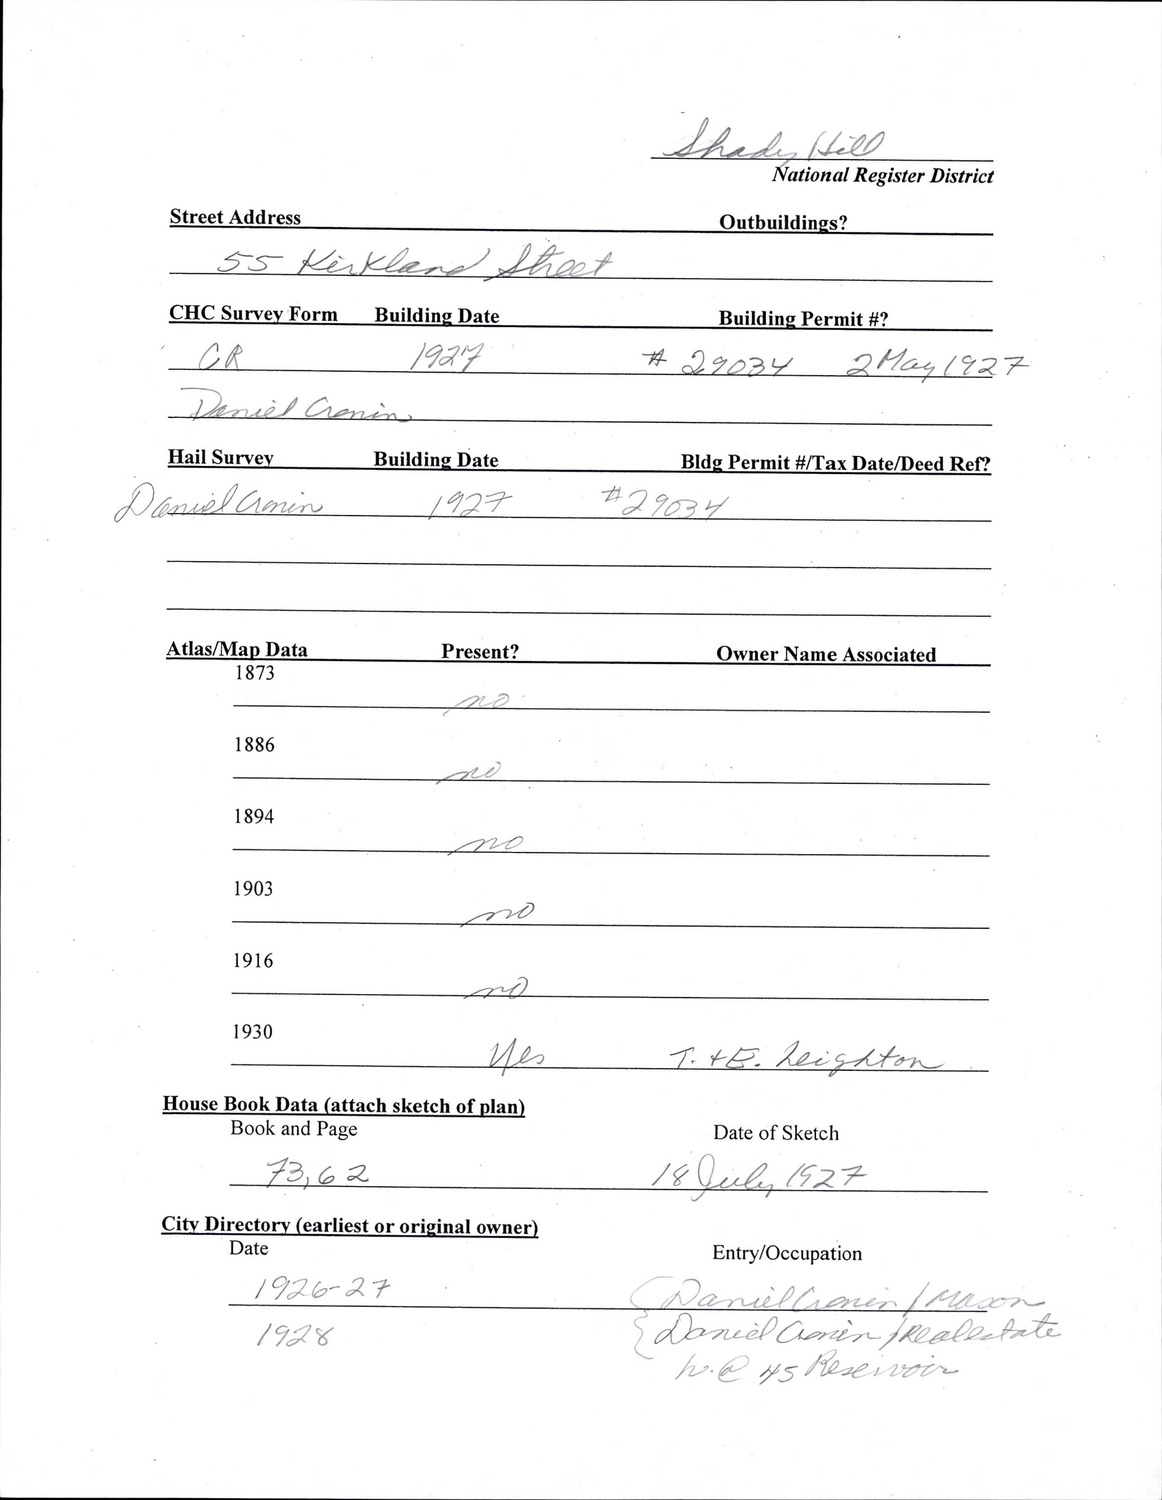 Shady Hill
National Register District
Street Address Outbuildings?
55 Kirkland Street
CHC Survey Form Building Date Building Permit #?
CR 1927 # 29034 2 May 1927
Daniel Cronin
Hail Survey Building Date Bldg Permit #/Tax Date/Deed Ref?
Daniel Cronin 1927 #29034
Atlas/Map Data Present? Owner Name Associated
1873
no
1886
no
1894
no
1903
no
1916
no
1930
Yes T. + E. Leighton
House Book Data (attach sketch of plan)
Book and Page Date of Sketch
73,62 18 July 1927
City Directory (earliest or original owner)
Date Entry/Occupation
1926-27 Daniel Cronin / Mason
1928 Daniel Cronin / Real estate
h. @ 45 Reservoir